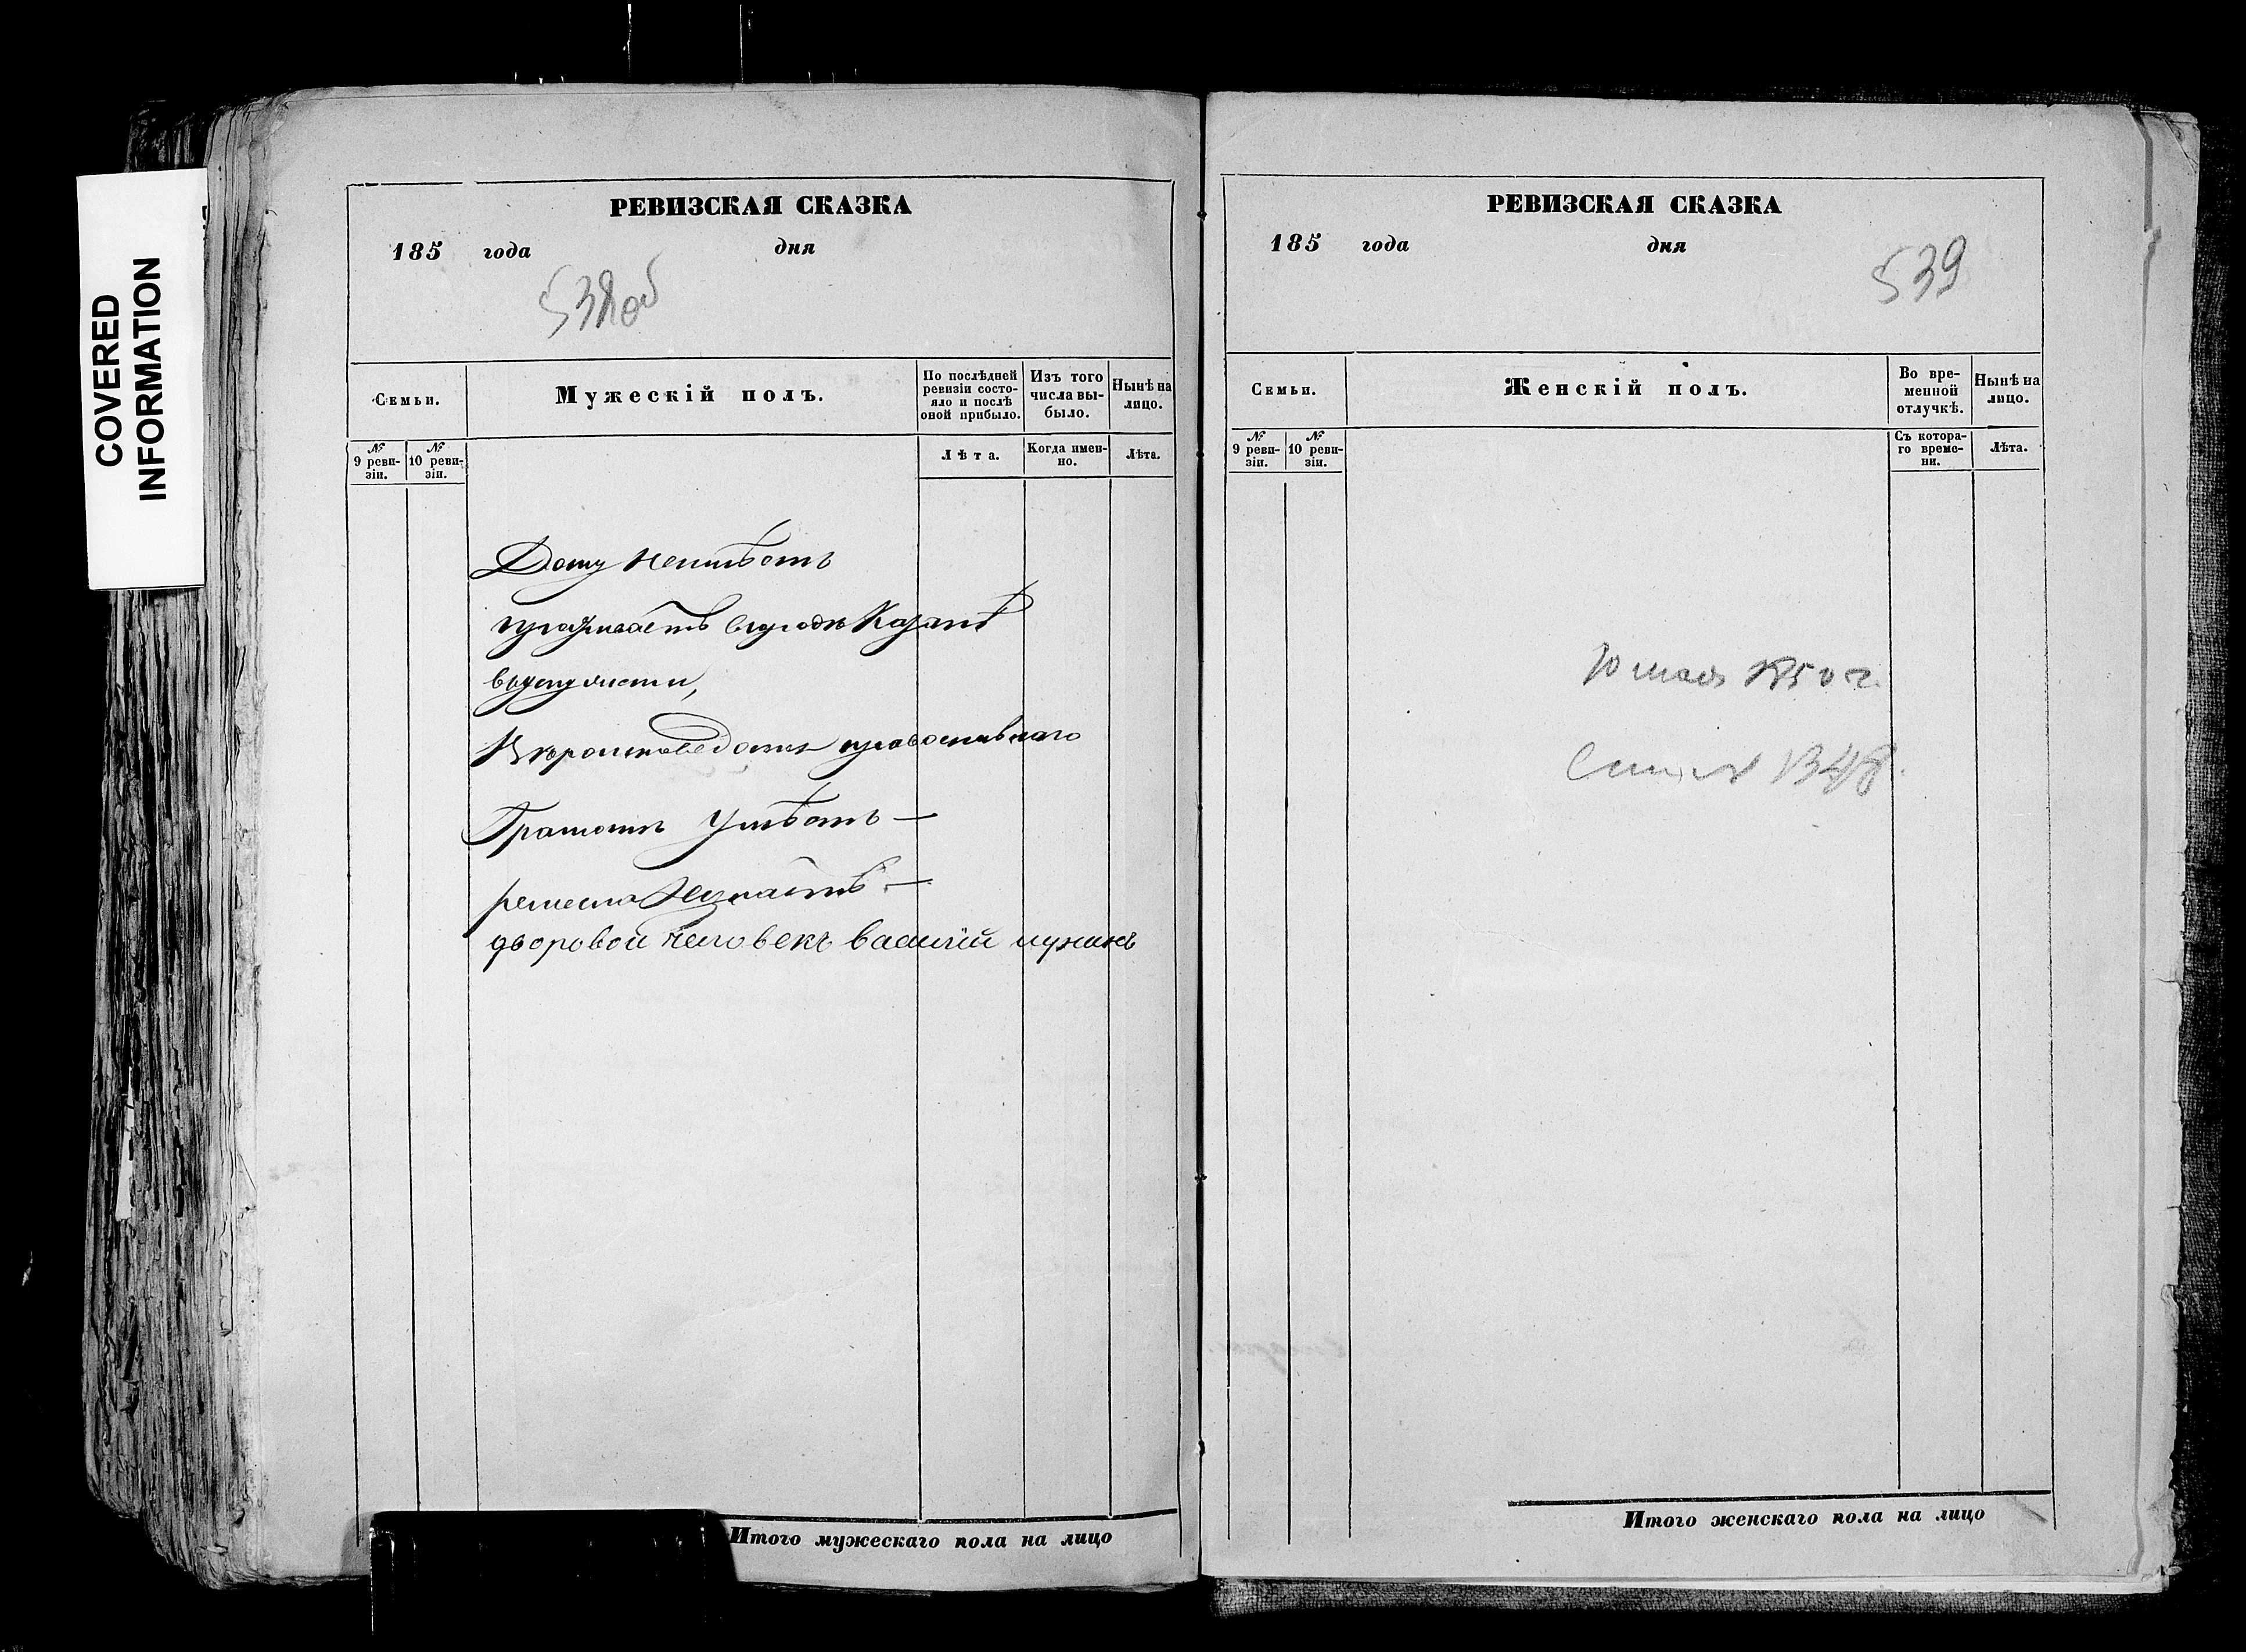 COVERED
INFORMATION
РЕВИЗСКАЯ СКАЗКА
185 года дня
538об
Семьи.
Мужескій полъ.
По послѣдней ревизіи состояло и послѣ оной прибыло.
Изъ того числа выбыло.
Нынѣ на лицо.
№ 9 ревизіи.
№ 10 ревизіи.
Лѣта.
Когда именно.
Лѣта.
Дому неимѣетъ
проживаетъ вгородѣ Казанѣ
вуслуженiи,
Вѣроисповеданія православнаго
Грамотѣ Умѣетъ —
ремесла Незнаетъ —
дворовой человекъ василій
Итого мужескаго пола на лицо
РЕВИЗСКАЯ СКАЗКА
185 года дня
539
Семьи.
Женскій полъ.
Во временной отлучкѣ.
Нынѣ на лицо.
№ 9 ревизіи.
№ 10 ревизіи.
Съ котораго времени.
Лѣта.
10 мая 1850 г.
Итого женскаго пола на лицо